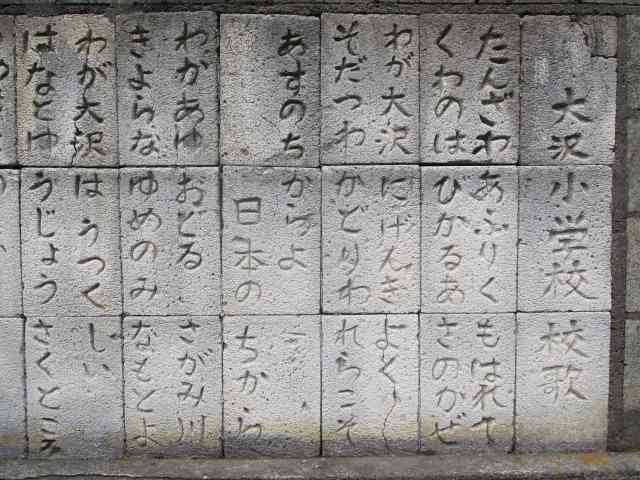 大沢小学校 校歌
たんざわ あふりく もはれて
くわのは びかるあ さのかぜ
わが大沢 にげんき よく
そだつわ かどりわ れらこそ
あすのち からよ
日本の ちから
わかあゆ おどる さがみ川
きよらな ゆめのみ なもとよ
わが大沢 は うつく しい
はなとゆ うじょう さくところ